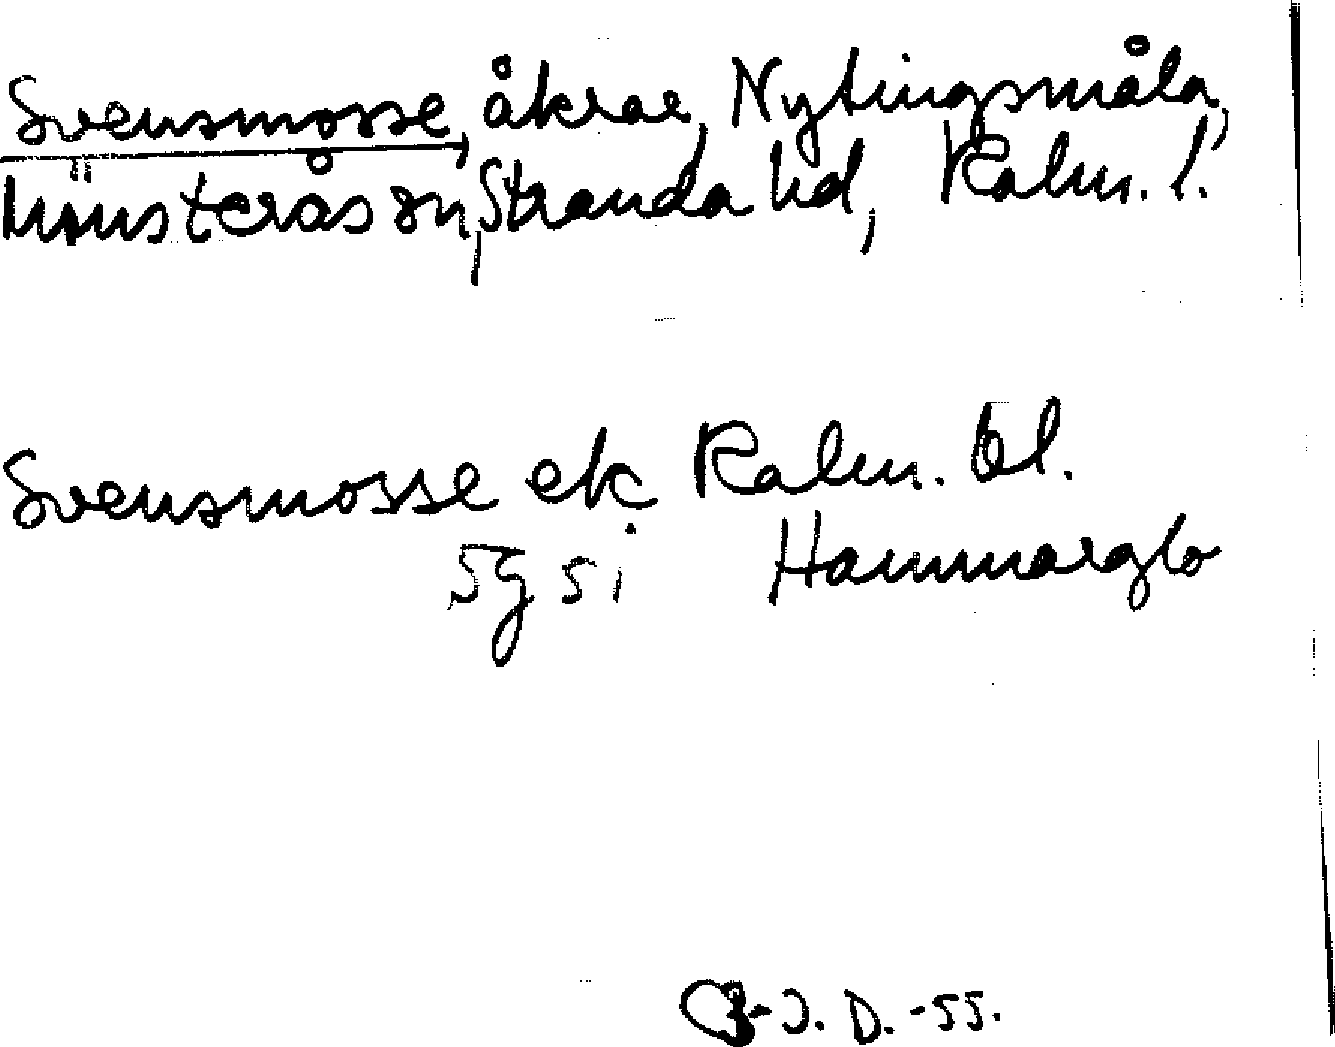 Svensmosse, åkrar, Nytingsmåla,
Mönsterås sn, Stranda hd, Kalm. l.
Svensmosse ek Kalm. bl.
5g 5i Hammarglo
C-J. D. -55.